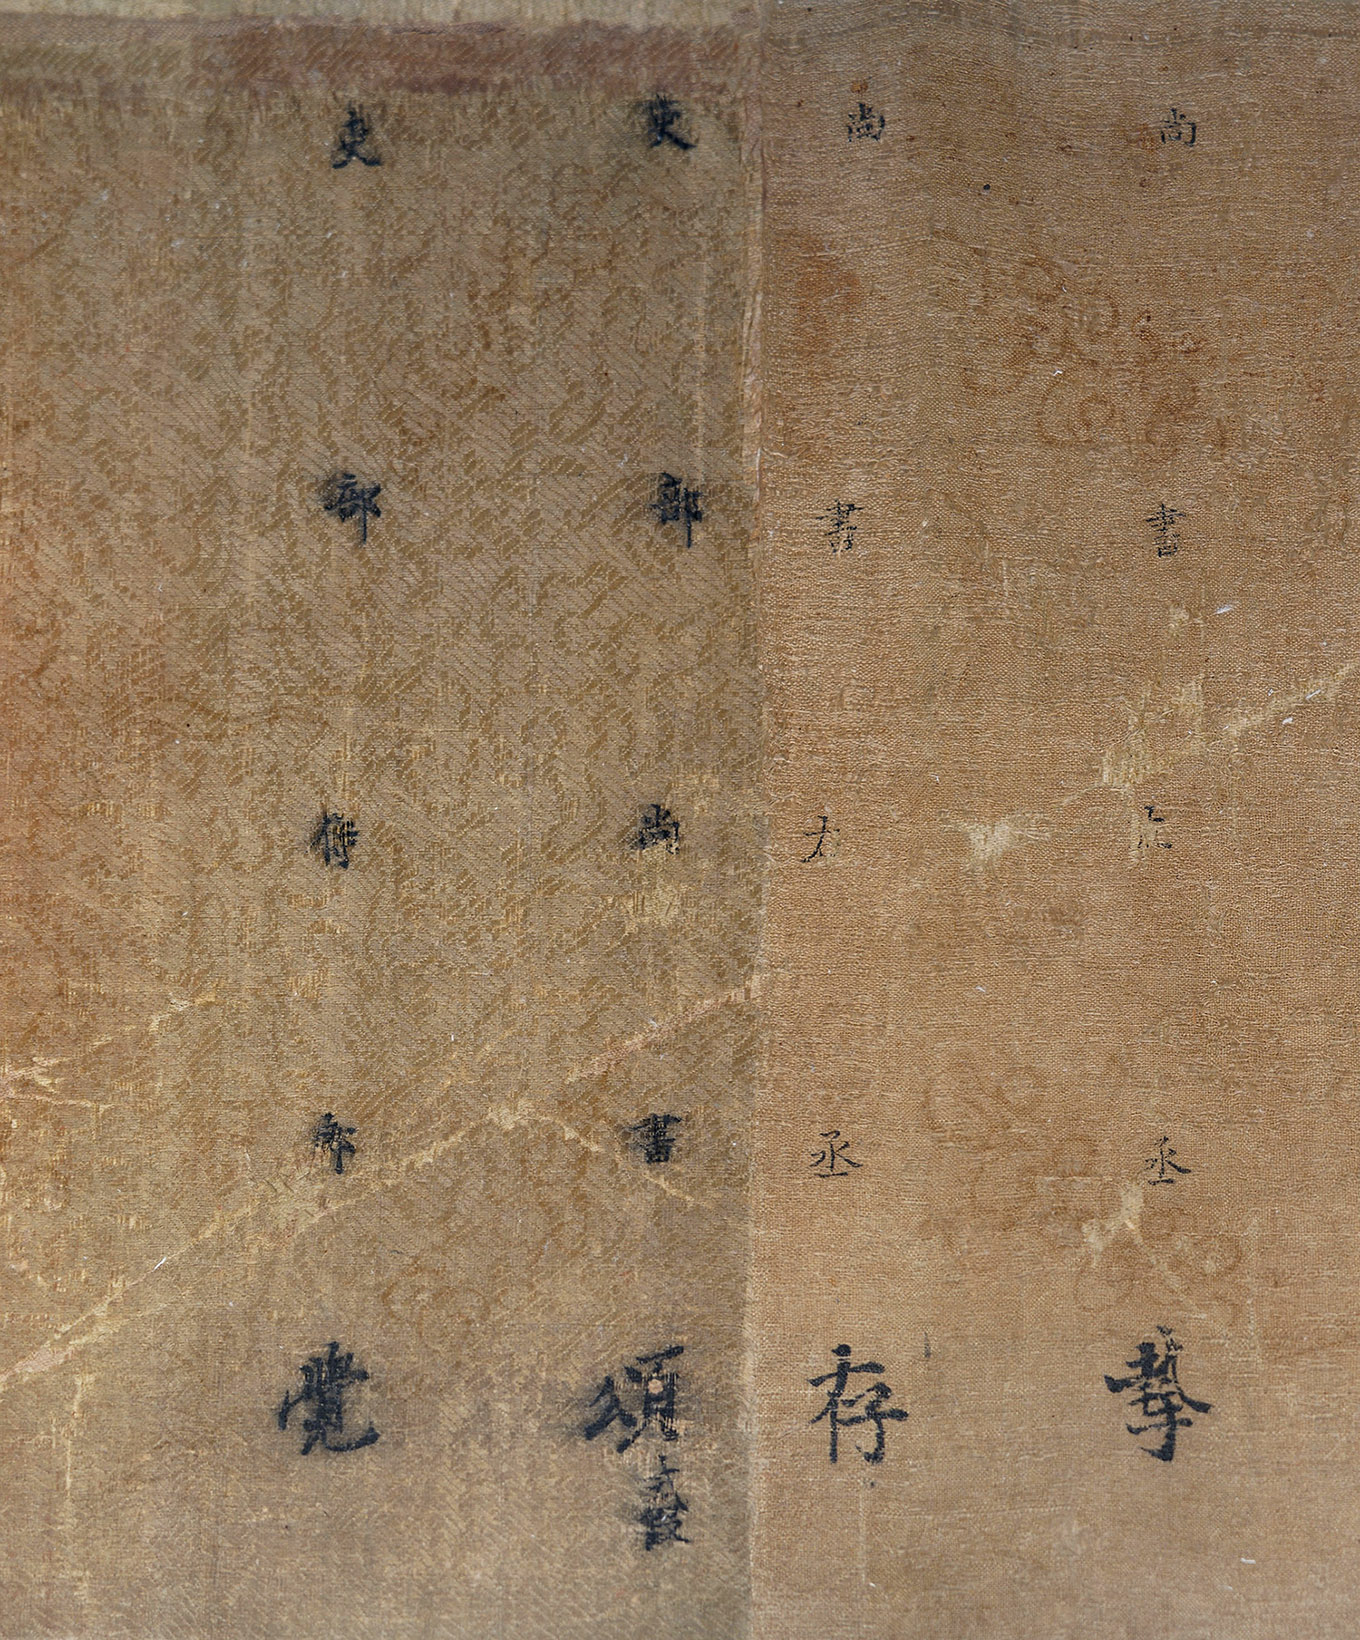 尚書左丞摯
尚書右丞存
吏部尚書頌
吏部侍郎覺